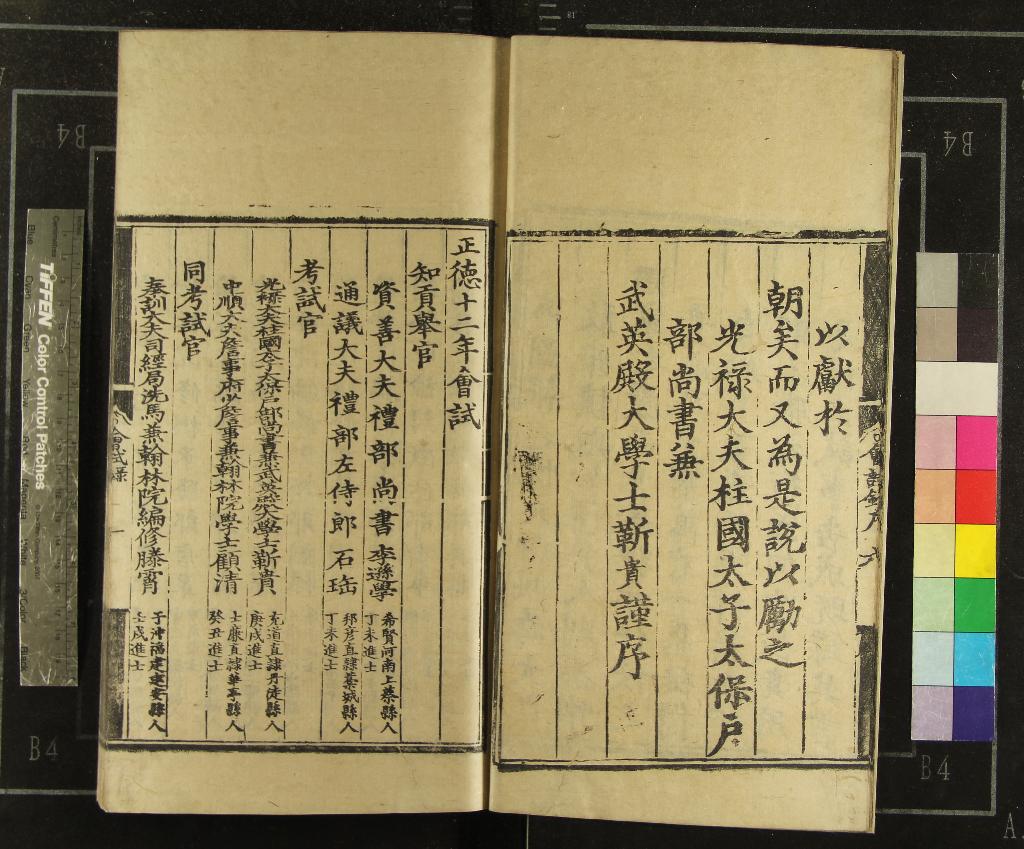 以獻於
朝矣而又為是說以勵之
光祿大夫柱國太子太保戶
部尚書兼
武英殿大學士靳貴謹序
正德十二年會試
知貢舉官
資善大夫禮部尚書李遜學
希賢河南上蔡縣人
丁未進士
通議大夫禮部左侍郎石珤
邦彥直隸藁城縣人
丁未進士
考試官
光祿大夫柱國太子太保戶部尚書兼武英殿大學士靳貴
充道直隸丹徒縣人
庚戌進士
中順大夫詹事府少詹事兼翰林院學士顧清
士廉直隸華亭縣人
癸丑進士
同考試官
奉訓大夫司經局洗馬兼翰林院編修滕霄
子沖福建建安縣人
壬戌進士
會試錄
一
會試錄序
六
TIFFEN Color Control Patches
B4
B4
B4
B4